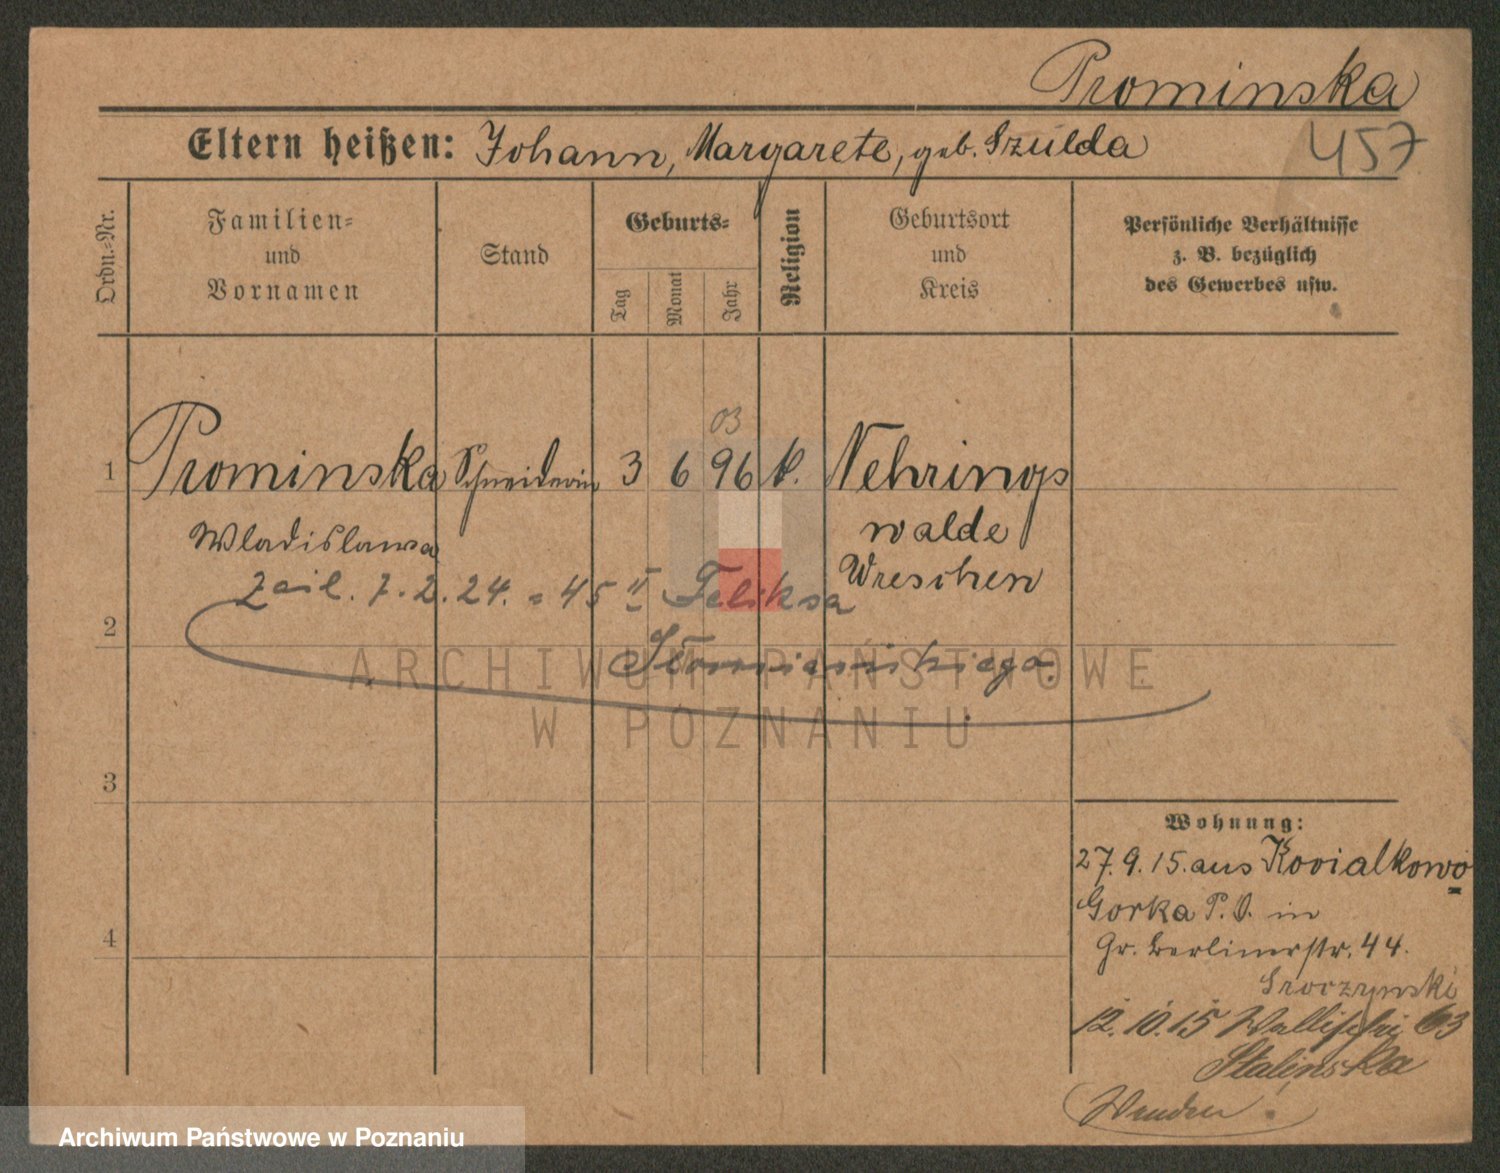 Prominska
457
Eltern heißen: Johann, Margarete, geb. Szulda
Ordn.-Nr.
Familien-
und
Vornamen
Stand
Geburts-
Tag
Monat
Jahr
Religion
Geburtsort
und
Kreis
Persönliche Verhältnisse
z. B. bezüglich
des Gewerbes usw.
03
1 Prominska Schneiderin 3 6 96 k. Nehrings
Wladislawa walde
Wreschen
7. 2. 24. = 45 II Feliksa
2
3
4
Wohnung:
27. 9. 15. aus
Gorka P. O. in
Gr. Berlinerstr. 44.
Sroczynski
12. 10. 15 Wallischei 63
Stalinska
Wenden
ARCHIWUM PAŃSTWOWE
W POZNANIU
Archiwum Państwowe w Poznaniu